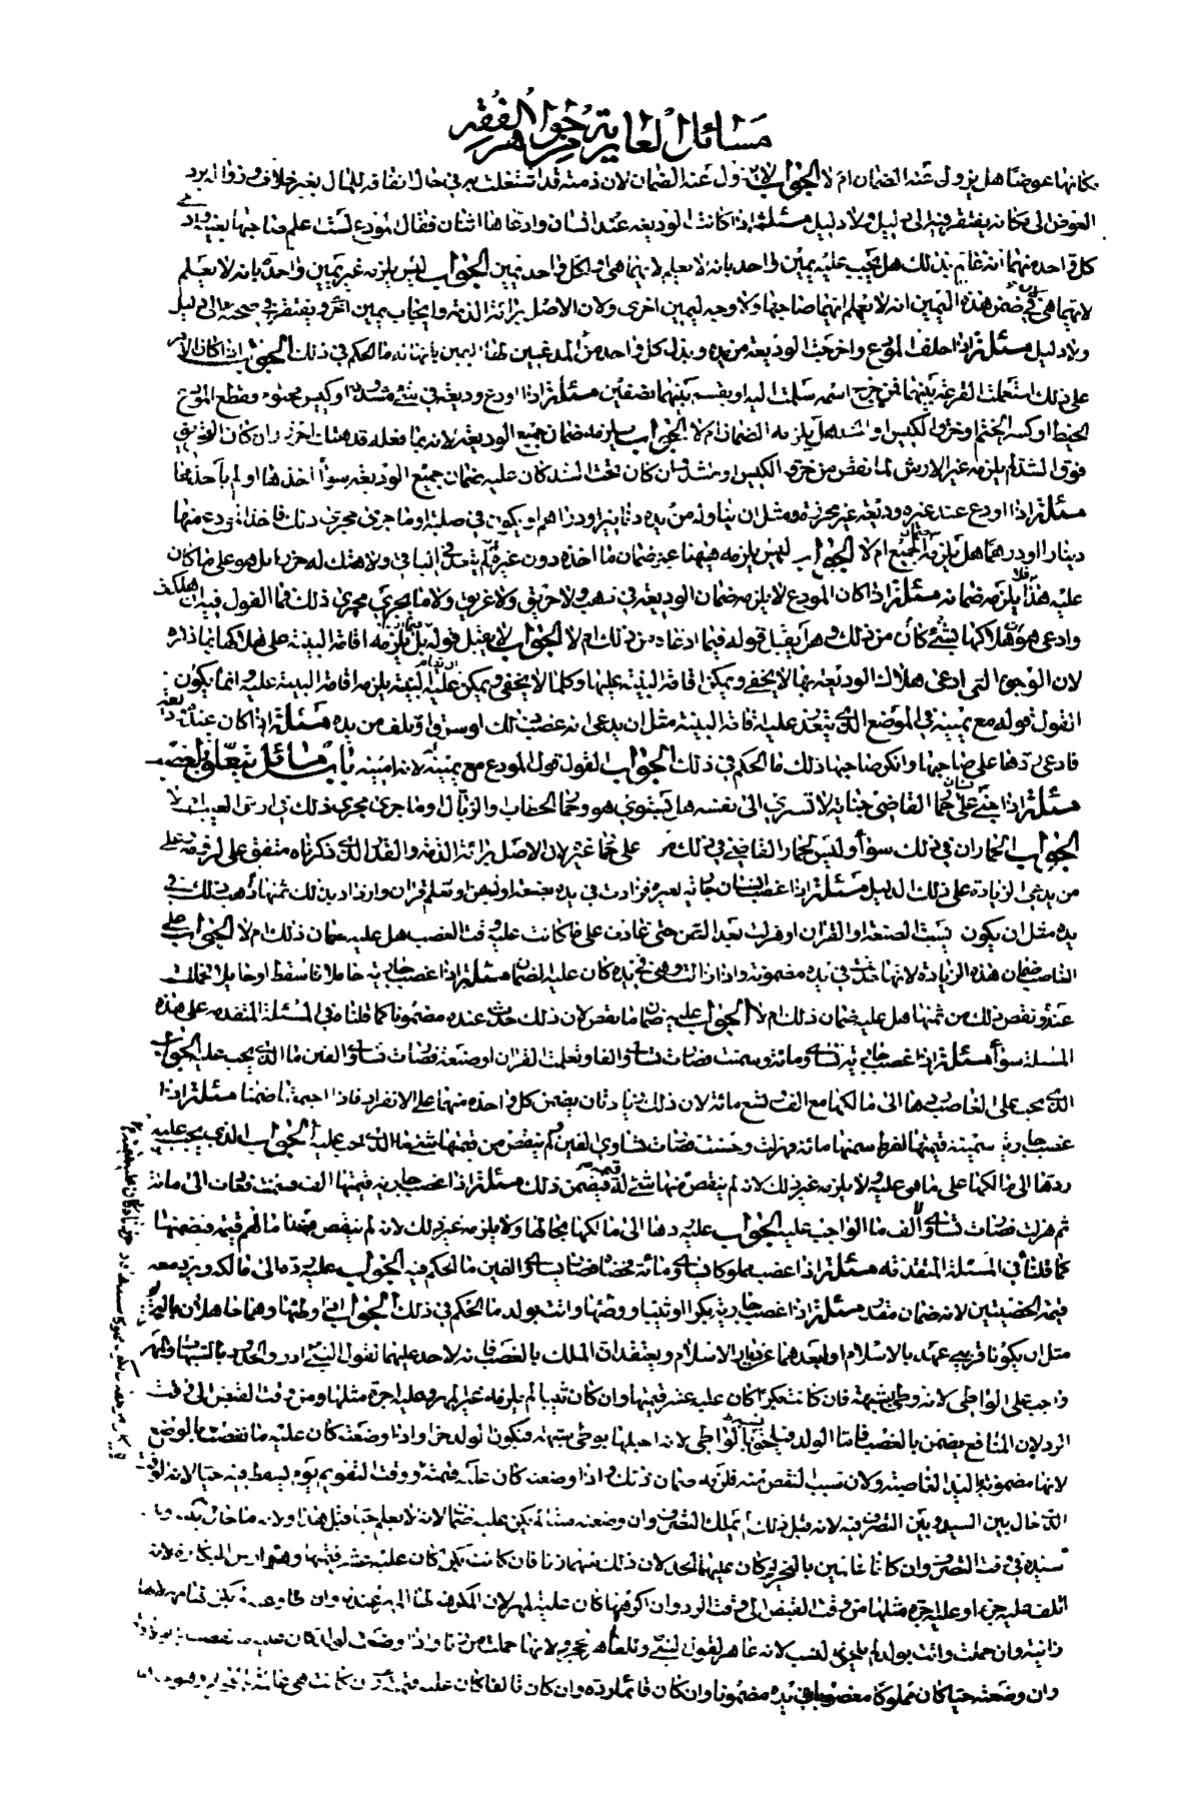 مسائل العارية من جواهر الفقه
مكانها عوضا هل يزول عنه الضمان ام لا الجواب لا يزول عنه الضمان لان ذمته قد اشتغلت به في حال انفاقه للمال بغير خلاف وزواله برد
العوض الى مكانه يفتقر فيه الى دليل ولا دليل مسئلة اذا كانت الوديعة عند انسان وادعاها اثنان فقال المودع لست اعلم صاحبها بعينه وادعى
كل واحد منهما انه عالم بذلك هل يجب عليه يمين واحد بانه لا يعلم لايهما هي او لكل واحد يمين الجواب ليس يلزمه غير يمين واحدة بانه لا يعلم
لايهما هي لان في ضمن هذه اليمين انه لا يعلم ايهما صاحبها ولا وجه ليمين اخرى ولان الاصل برائة الذمة وايجاب يمين اخرى يفتقر في صحته الى دليل
ولا دليل مسئلة اذا حلف المودع واخرجت الوديعة من يده وبذل كل واحد من المدعيين لها اليمين بانها له ما الحكم في ذلك الجواب اذا كان الامر
على ذلك استعملت القرعة بينهما فمن خرج اسمه سلمت اليه او يقسم بينهما نصفين مسئلة اذا اودع وديعة في شئ مشدود او كيس مختوم فقطع المودع
الخيط او كسر الختم او خرق الكيس او الشد هل يلزمه الضمان ام لا الجواب يلزمه ضمان جميع الوديعة لانه بما فعله قد هتك الحرز وان كان الخرق
فوق الشد لم يلزمه غير الارش لما نقص من خرق الكيس او شده وان كان تحت الشد كان عليه ضمان جميع الوديعة سواء اخذها او لم يأخذها
مسئلة اذا اودع عند غيره وديعة غير محرزة مثل ان يناوله من يده دنانير او دراهم او يكون في صلبة وما جرى مجرى ذلك فاخذ المودع منها
دينارا او درهما هل يلزمه ضمان الجميع ام لا الجواب ليس يلزمه هيهنا غير ضمان ما اخذه دون غيره لانه لم يتعد في الباقي ولا هتك له حرزا بل هو على ما كان
عليه فلا يلزمه ضمانه مسئلة اذا كان المودع لا يلزمه ضمان الوديعة في نهب ولا حريق ولا غريق ولا ما يجري مجرى ذلك فما القول فيه ان هلكت
وادعى هو هلاكها بشئ كان من ذلك وهل يقبل قوله فيما ادعاه من ذلك ام لا الجواب لا يقبل قوله بل يلزمه اقامة البينة على هلاكها بما ذكره
لان الوجوه التي ادعى هلاك الوديعة بها لا يخفى ويمكن اقامة البينة عليها وكلما لا يخفى ويمكن اقامة البينة عليه يلزمه اقامة البينة عليه وانما يكون
القول قوله مع يمينه في الموضع الذي يتعذر عليه اقامة البينة مثل ان يدعى انه غصب ذلك او سرق او تلف من يده مسئلة اذا كان عنده وديعة
فادعى ردها على صاحبها وانكر صاحبها ذلك ما الحكم في ذلك الجواب القول قول المودع مع يمينه لانه امينه باب مسائل تتعلق بالغصب
مسئلة اذا جنى انسان على حمار القاضي جناية لا تسري الى نفسه هل يستوي هو وحمار الحطاب والزبال وما جرى مجرى ذلك في ارش العيب ام لا
الجواب الحماران في ذلك سواء وليس لحمار القاضي في ذلك على حمار غيره لان الاصل برائة الذمة والقدر الذي ذكرناه متفق على لزومه وعلى
من يدعى الزيادة على ذلك الدليل مسئلة اذا غصب انسان جارية لغيره فزادت في يده بصنعة او سمن او تعلم قران وازداد بذلك ثمنها ثم ذهب ذلك في
يده مثل ان يكون نسيت الصنعة او القران او هزلت بعد السمن حتى عادت على ما كانت عليه وقت الغصب هل عليه ضمان ذلك ام لا الجواب على
الغاصب ضمان هذه الزيادة لانها حدثت في يده مضمونة واذا زالت وهي في يده كان عليه الضمان مسئلة اذا غصب جارية حاملا فاسقطت او حايلا فحملت
عنده ونقص ذلك من ثمنها هل عليه ضمان ذلك ام لا الجواب عليه ضمان ما نقص لان ذلك حدث عنده مضمونا كما قلناه في المسئلة المتقدمة على هذه
المسئلة سواء مسئلة اذا غصب جارية تساوي مائة وسمنت فصارت تساوي الفا وتعلمت القران او صنعة فصارت تساوي الفين ما الذي يجب عليه الجواب
الذي يجب على الغاصب ردها الى مالكها مع الف وتسع مائة لان ذلك زيادتان يضمن كل واحدة منهما على الانفراد فاذا اجتمعتا ضمنا مسئلة اذا
غصب جارية سمينة قيمتها لفرط سمنها مائة فهزلت وحسنت فصارت تساوي الفين ولم ينقص من قيمتها شئ ما الذي يجب عليه الجواب الذي يجب عليه
ردها الى مالكها على ما هي عليه ولا يلزمه غير ذلك لانه لم ينقص منها شئ له قيمة فيضمن ذلك مسئلة اذا غصب جارية قيمتها الف فسمنت فعادت الى مائة
ثم هزلت فصارت تساوي الف ما الواجب عليه الجواب عليه ردها الى مالكها بحالها ولا يلزمه غير ذلك لانه لم ينقص منها ما له قيمة فيضمنها
كما قلناه في المسئلة المتقدمة مسئلة اذا غصب مملوكا يساوي مائة فخصاه فصار يساوي الفين ما الحكم فيه الجواب عليه رده الى مالكه ويرد معه
قيمة الخصيتين لانه ضمان مقدر مسئلة اذا غصب جارية بكرا او ثيبا ووطئها واتت بولد ما الحكم في ذلك الجواب اذا وطئها وهما جاهلان بالتحريم
مثل ان يكونا قريبي عهد بالاسلام او لبعدهما عن ديار الاسلام ويعتقدان الملك بالغصب فانه لا حد عليهما لقول النبي ادرؤا الحدود بالشبهات والمهر
واجب على الواطي لانه وطئ بشبهة فان كانت بكرا كان عليه عشر قيمتها وان كان ثيبا لم يلزمه غير المهر وعليه اجرة مثلها من وقت القبض الى وقت
الرد لان المنافع يضمن بالغصب فاما الولد فيلحق نسبه بالواطي لانه احبلها بوطئ بشبهة فيكون الولد حرا واذا وضعته كان عليه ما نقصت بالوضع
لانها مضمونة باليد الغاصبة ولان سبب النقص منه فلزمه ضمان ذلك واذا وضعته كان عليه قيمته ووقت التقويم يوم يسقط فيه حيا لانه الوقت
الذي حال بين السيد وبين التصرف فيه لانه قبل ذلك لم يملك التصرف وان وضعته ميتا لم يكن عليه ضمان لانه لا يعلم حيا قبل هذا ولانه ما حال بينه وبين
سيده في وقت التصرف وان كانا عالمين بالتحريم كان عليهما الحد لان ذلك منهما زنا فان كانت بكرا كان عليه عشر قيمتها وهو ارش البكارة لانه
اتلف عليه جزءا وعليه اجرة مثلها من وقت القبض الى وقت الرد وان اكرهها كان عليه المهر لان المكرهة لها المهر عندنا وان طاوعته لم يكن لها مهر لانها
زانية وان حملت واتت بولد لم يلحق النسب لانه عاهر لقول النبي وللعاهر الحجر ولانها حملت من زنا واذا وضعت الولد كان عليه ما نقصت
وان وضعته حيا كان مملوكا مغصوبا في يده مضمونا وان كان قائما رده وان كان تالفا كان عليه قيمته